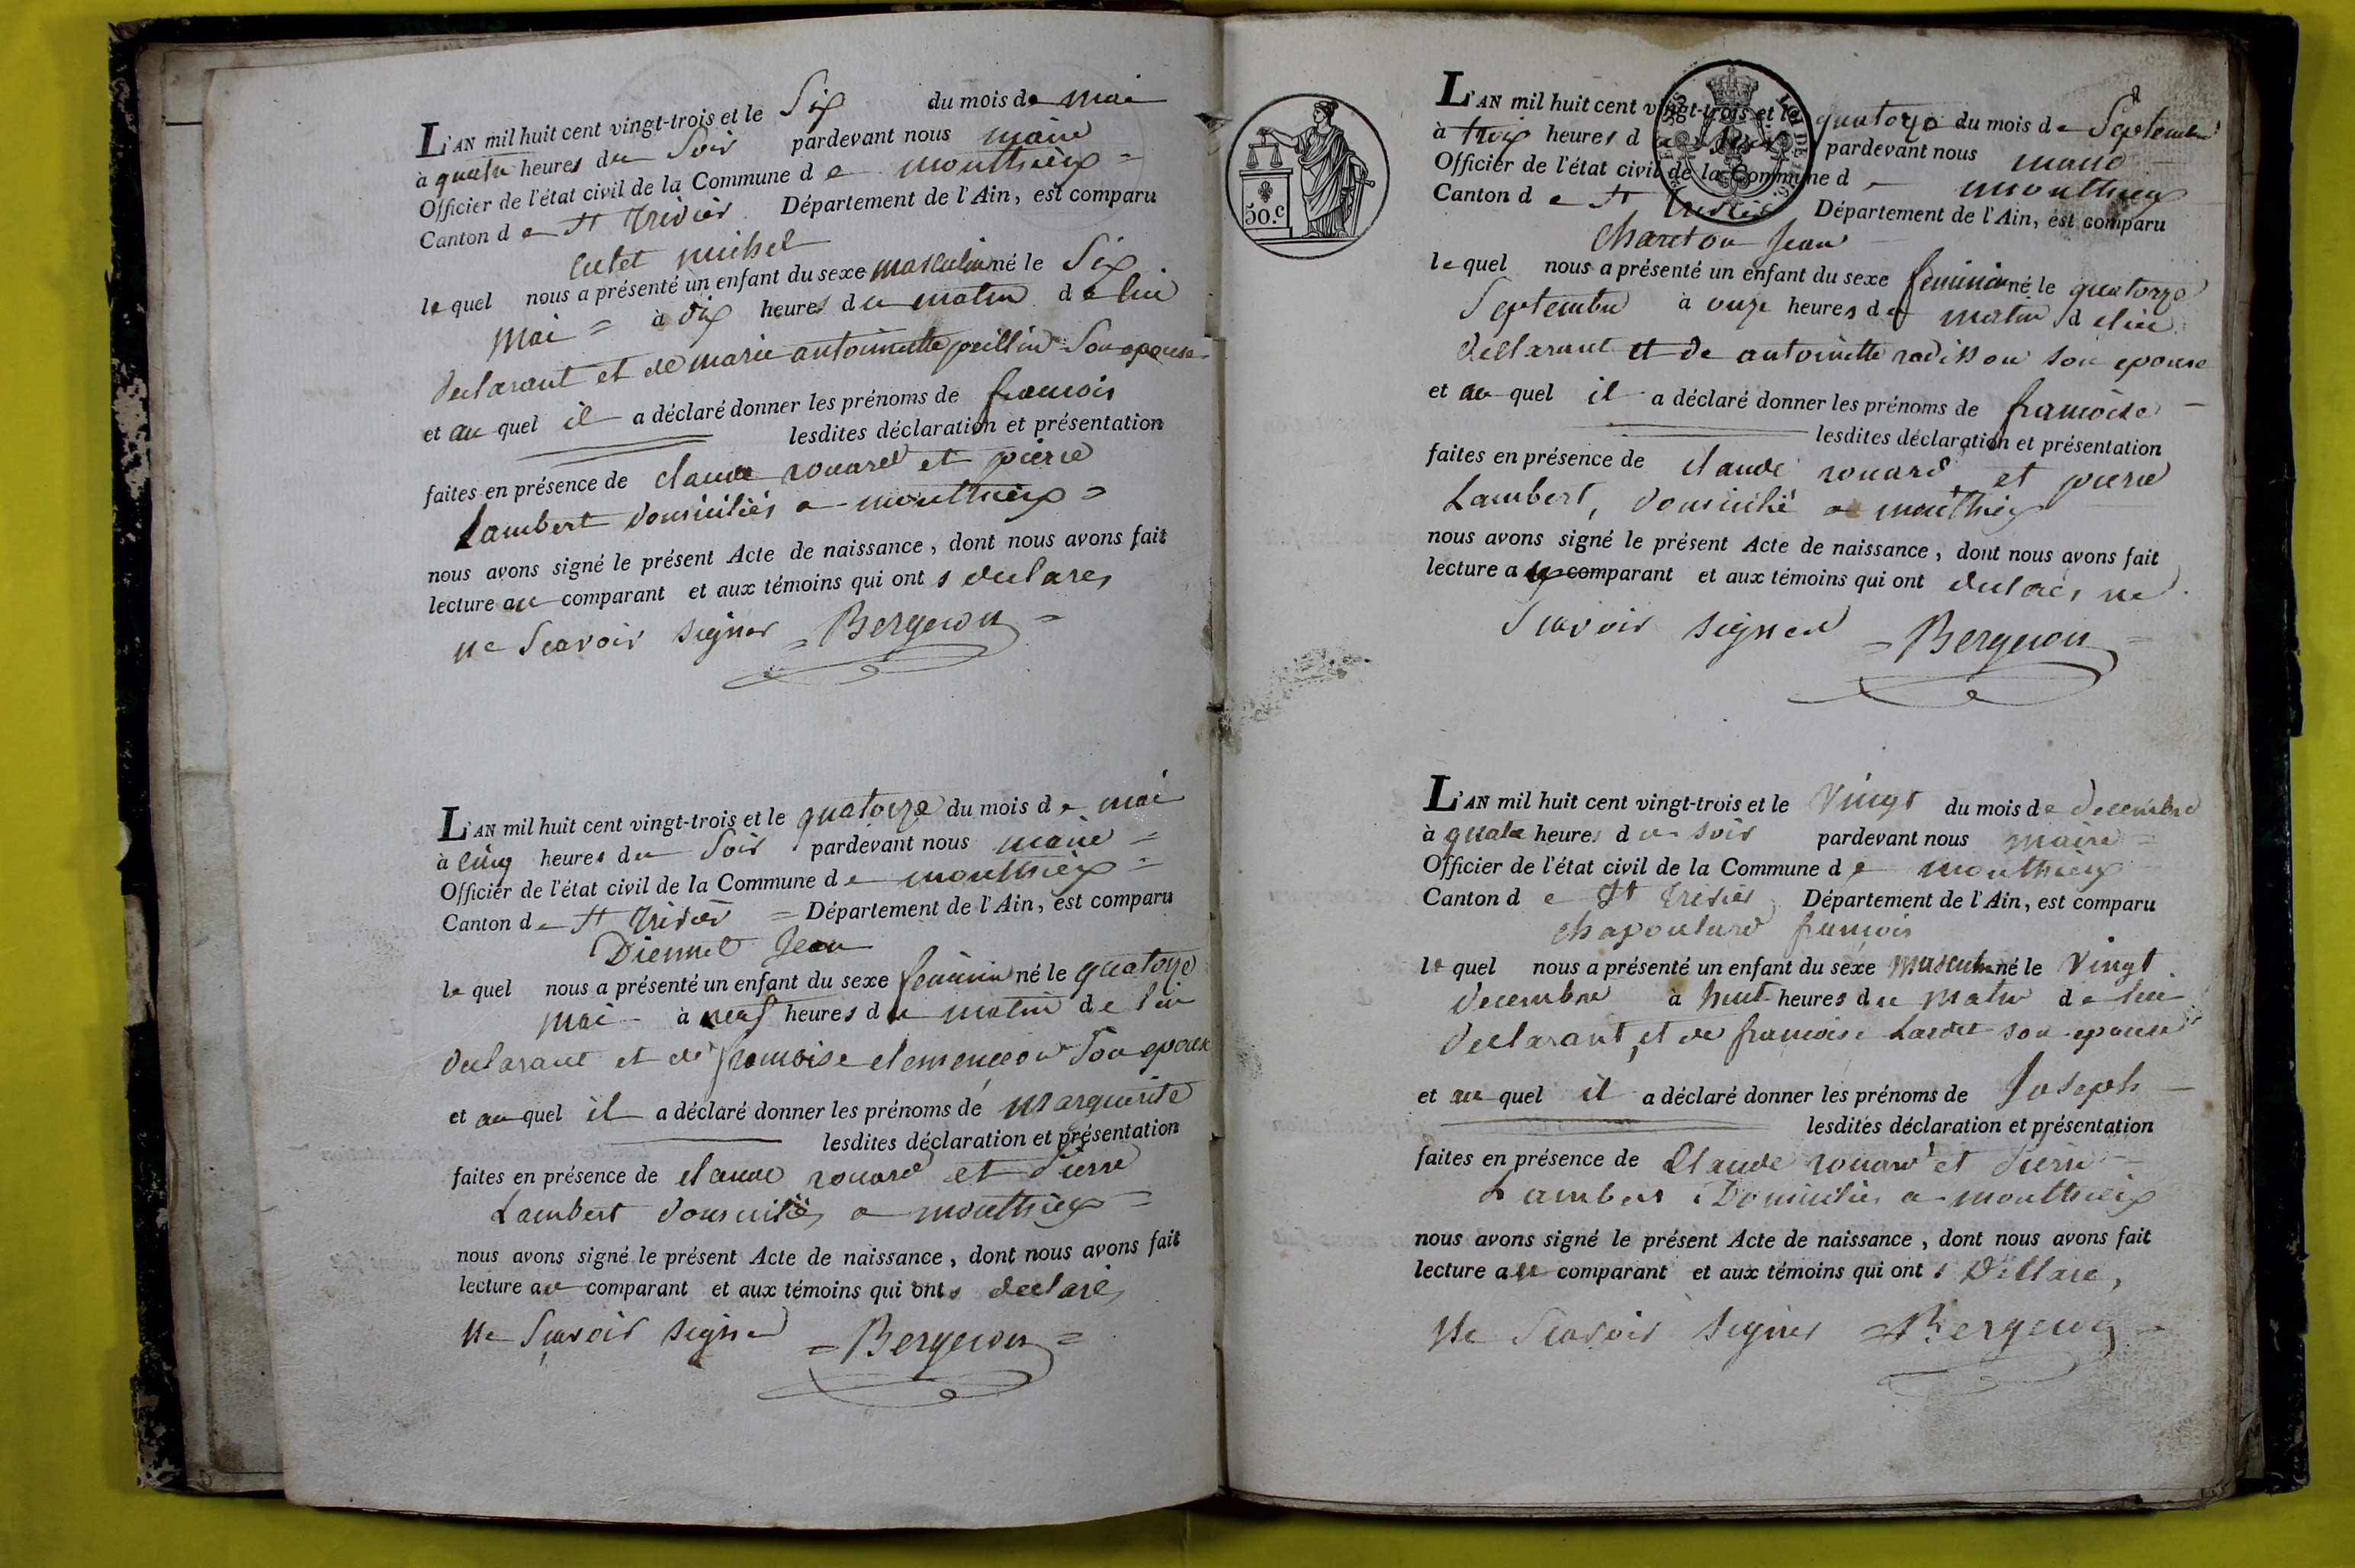 L'AN mil huit cent vingt-trois et le Six du mois de mai
à quatre heures du Soir pardevant nous maire
Officier de l'état civil de la Commune de monthieux =
Canton de St trivier Département de l'Ain, est comparu
michel
lequel nous a présenté un enfant du sexe masculin né le Six
mai = à dix heures du matin de lui
declarant et de marie antoinette peillin Son epouse
et au quel il a déclaré donner les prénoms de francois
lesdites déclaration et présentation
faites en présence de claude rouard et pierre
Lambert domiciliés a monthieux =
nous avons signé le présent Acte de naissance, dont nous avons fait
lecture au comparant et aux témoins qui ont declares
ne Scavoir signer = Bergeron =
L'AN mil huit cent vingt-trois et le quatorze du mois de mai
à cinq heures du Soir pardevant nous maire =
Officier de l'état civil de la Commune de monthieux =
Canton de St trivier = Département de l'Ain, est comparu
Diennet Jean
lequel nous a présenté un enfant du sexe feminin né le quatorze
mai à neuf heures du matin de lui
declarant et de francoise clemencon Son epouse
et au quel il a déclaré donner les prénoms de marguerite
lesdites déclaration et présentation
faites en présence de claude rouard et Pierre
Lambert domiciliés a monthieux =
nous avons signé le présent Acte de naissance, dont nous avons fait
lecture au comparant et aux témoins qui ont declaré
ne Scavoir signer = Bergeron =
50.c
L'AN mil huit cent vingt-trois et le quatorze du mois de Septembre
à trois heures d pardevant nous maire
Officier de l'état civil de la Commune d monthieux
Canton de St trivier Département de l'Ain, est comparu
Chareton Jean
lequel nous a présenté un enfant du sexe feminin né le quatorze
Septembre à onze heures du matin de lui
declarant et de antoinette radisson son epouse
et au quel il a déclaré donner les prénoms de francoise
lesdites déclaration et présentation
faites en présence de claude rouard et pierre
Lambert, domicilié a monthieux
nous avons signé le présent Acte de naissance, dont nous avons fait
lecture au comparant et aux témoins qui ont declarés ne
Scavoir signer = Bergeron =
L'AN mil huit cent vingt-trois et le Vingt du mois de decembre
à quatre heures du soir pardevant nous maire =
Officier de l'état civil de la Commune de monthieux
Canton de St trivier Département de l'Ain, est comparu
chapoulard francois
lequel nous a présenté un enfant du sexe masculin né le Vingt
decembre à huit heures du matin de lui
declarant, et de francoise Lardet son epouse
et au quel il a déclaré donner les prénoms de Joseph
lesdites déclaration et présentation
faites en présence de Claude rouard et Pierre
Lambert Domiciliés a monthieux
nous avons signé le présent Acte de naissance, dont nous avons fait
lecture au comparant et aux témoins qui ont Déclaré,
ne Scavoir signer = Bergeron =